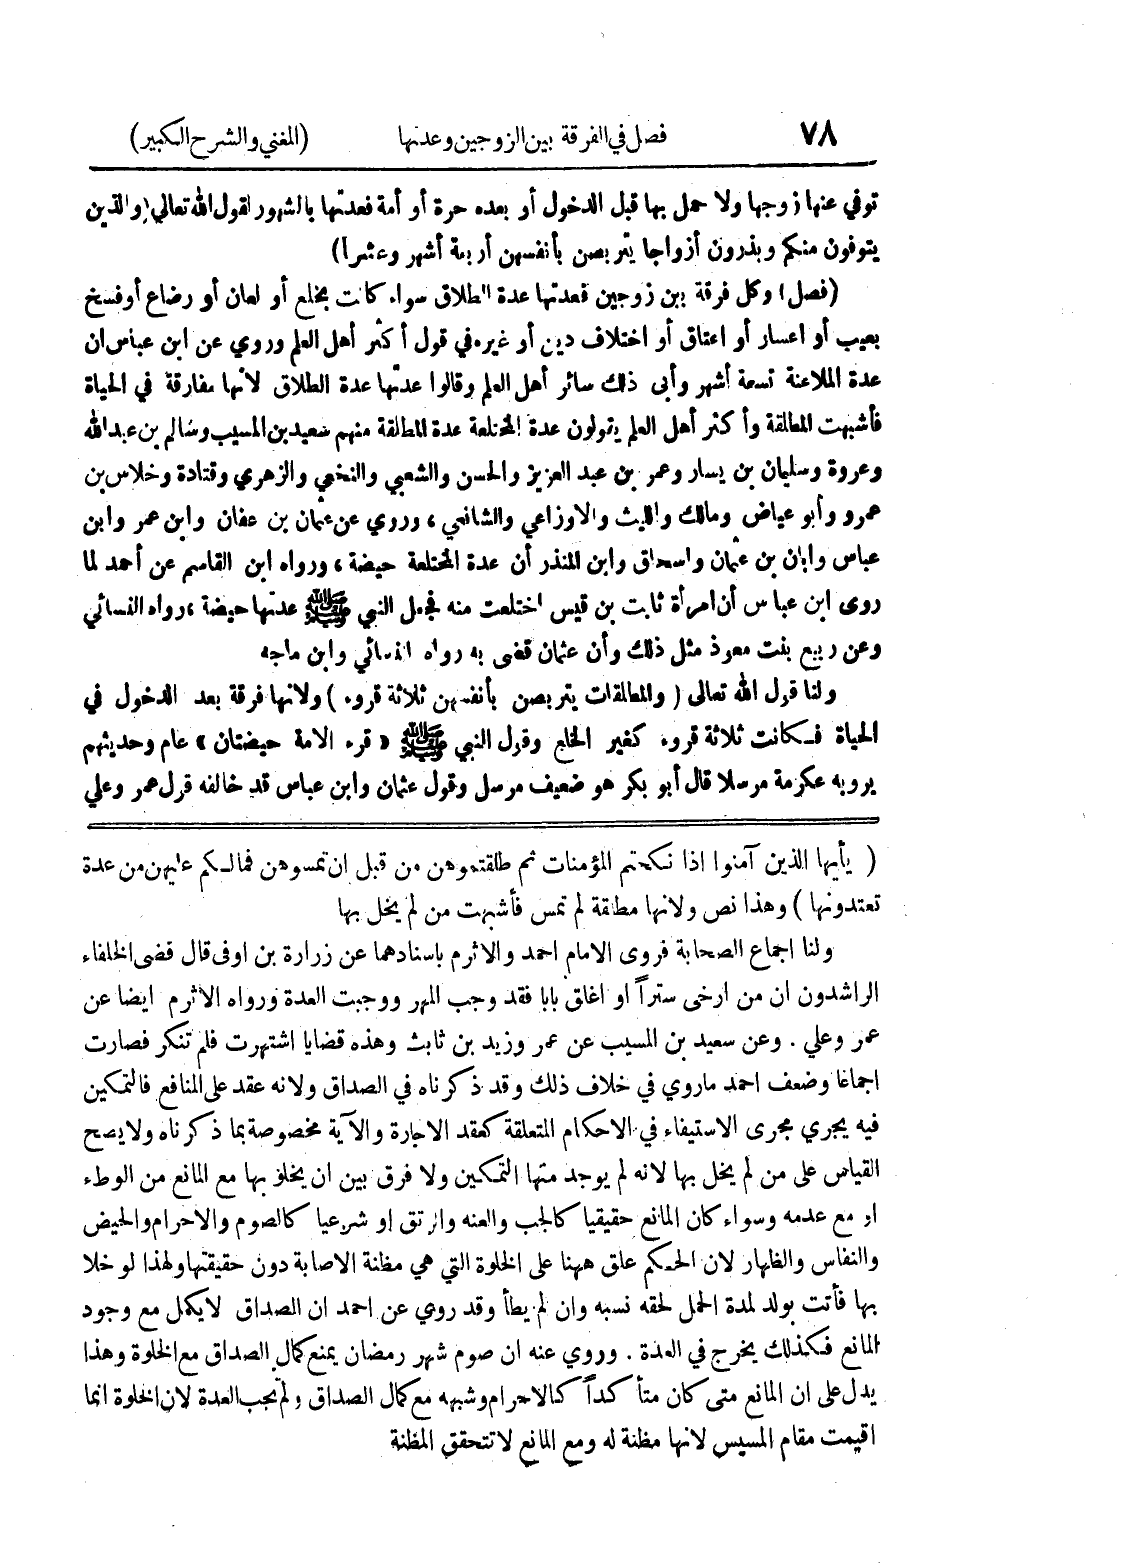 ٧٨ فصل في الفرقة بين الزوجين وعدتها (المغني والشرح الكبير)
توفي عنها زوجها ولا حمل بها قبل الدخول أو بعده حرة أو أمة فعدتها بالشهور لقول الله تعالى (والذين
يتوفون منكم ويذرون أزواجا يتربصن بأنفسهن أربعة أشهر وعشرا)
(فصل) وكل فرقة بين زوجين فعدتها عدة الطلاق سواء كانت بخلع أو لعان أو رضاع أو فسخ
بعيب أو اعسار أو اعتاق أو اختلاف دين أو غيره في قول أكثر أهل العلم وروي عن ابن عباس ان
عدة الملاعنة تسعة أشهر وأبى ذلك سائر أهل العلم وقالوا عدتها عدة الطلاق لأنها مفارقة في الحياة
فأشبهت المطلقة وأكثر أهل العلم يقولون عدة المختلعة عدة المطلقة منهم سعيد بن المسيب وسالم بن عبدالله
وعروة وسليمان بن يسار وعمر بن عبد العزيز والحسن والشعبي والنخعي والزهري وقتادة وخلاس بن
عمرو وأبو عياض ومالك والليث والاوزاعي والشافعي ، وروي عن عثمان بن عفان وابن عمر وابن
عباس وابان بن عثمان واسحاق وابن المنذر أن عدة المختلعة حيضة ، ورواه ابن القاسم عن أحمد لما
روى ابن عباس أن امرأة ثابت بن قيس اختلعت منه فجعل النبي ﷺ عدتها حيضة ، رواه النسائي
وعن ربيع بنت معوذ مثل ذلك وأن عثمان قضى به رواه النسائي وابن ماجه
ولنا قول الله تعالى ( والمطلقات يتربصن بأنفسهن ثلاثة قروء ) ولانها فرقة بعد الدخول في
الحياة فكانت ثلاثة قروء كغير الخلع وقول النبي ﷺ « قرء الامة حيضتان » عام وحديثهم
يرويه عكرمة مرسلا قال أبو بكر هو ضعيف مرسل وقول عثمان وابن عباس قد خالفه قول عمر وعلي
( يأيها الذين آمنوا اذا نكحتم المؤمنات ثم طلقتموهن من قبل ان تمسوهن فمالكم عليهن من عدة
تعتدونها ) وهذا نص ولانها مطلقة لم تمس فأشبهت من لم يخل بها
ولنا اجماع الصحابة فروى الامام احمد والاثرم باسنادهما عن زرارة بن اوفى قال قضى الخلفاء
الراشدون ان من ارخى ستراً او اغلق بابا فقد وجب المهر ووجبت العدة ورواه الأثرم ايضا عن
عمر وعلي . وعن سعيد بن المسيب عن عمر وزيد بن ثابت وهذه قضايا اشتهرت فلم تنكر فصارت
اجماعا وضعف احمد ماروي في خلاف ذلك وقد ذكرناه في الصداق ولانه عقد على المنافع فالتمكين
فيه يجري مجرى الاستيفاء في الاحكام المتعلقة كعقد الاجارة والآية مخصوصة بما ذكرناه ولا يصح
القياس على من لم يخل بها لانه لم يوجد منها التمكين ولا فرق بين ان يخلو بها مع المانع من الوطء
او مع عدمه وسواء كان المانع حقيقيا كالجب والعنه والرتق او شرعيا كالصوم والاحرام والحيض
والنفاس والظهار لان الحكم علق ههنا على الخلوة التي هي مظنة الاصابة دون حقيقتها ولهذا لو خلا
بها فأتت بولد لمدة الحمل لحقه نسبه وان لم يطأ وقد روي عن احمد ان الصداق لا يكمل مع وجود
المانع فكذلك يخرج في العدة . وروي عنه ان صوم شهر رمضان يمنع كمال الصداق مع الخلوة وهذا
يدل على ان المانع متى كان متأكداً كالاحرام وشبهه مع كمال الصداق ولم تجب العدة لان الخلوة انما
اقيمت مقام المسيس لانها مظنة له ومع المانع لا تتحقق المظنة